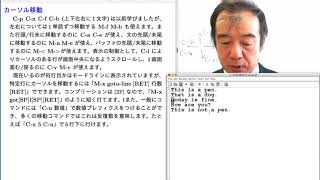 カーソル移動
C-p C-n C-f C-b (上下左右に1文字) は以前学びましたが、
左右については1単語ずつ移動する M-f M-b も使えます。ま
た行頭/行末に移動するのに C-a C-e が使え、文の先頭/末尾
に移動するのに M-a M-e が使え、バッファの先頭/末尾に移動
するのに M-< M-> が使えます。表示の制御として、C-l によ
りカーソルのある行が画面中央になるようスクロールし、1画面
進む/戻るのに C-v M-v が使えます。
現在いるのが何行目かはモードラインに表示されていますが、
特定行にカーソルを移動するには「M-x goto-line [RET] 行数
[RET]」でできます。コンプリーションは [SP] なので、「M-x
got[SP]l[SP][RET]」のように短く打てます。1また、一般にコ
マンドには「C-u 数値」で数値プレフィクスをつけることがで
き、多くの移動コマンドではこれは反復数を意味します。たとえ
ば「C-u 5 C-n」で5行下に行けます。
This is a pen.
That is a dog.
Today is fine.
How are you?
This is not a pen.